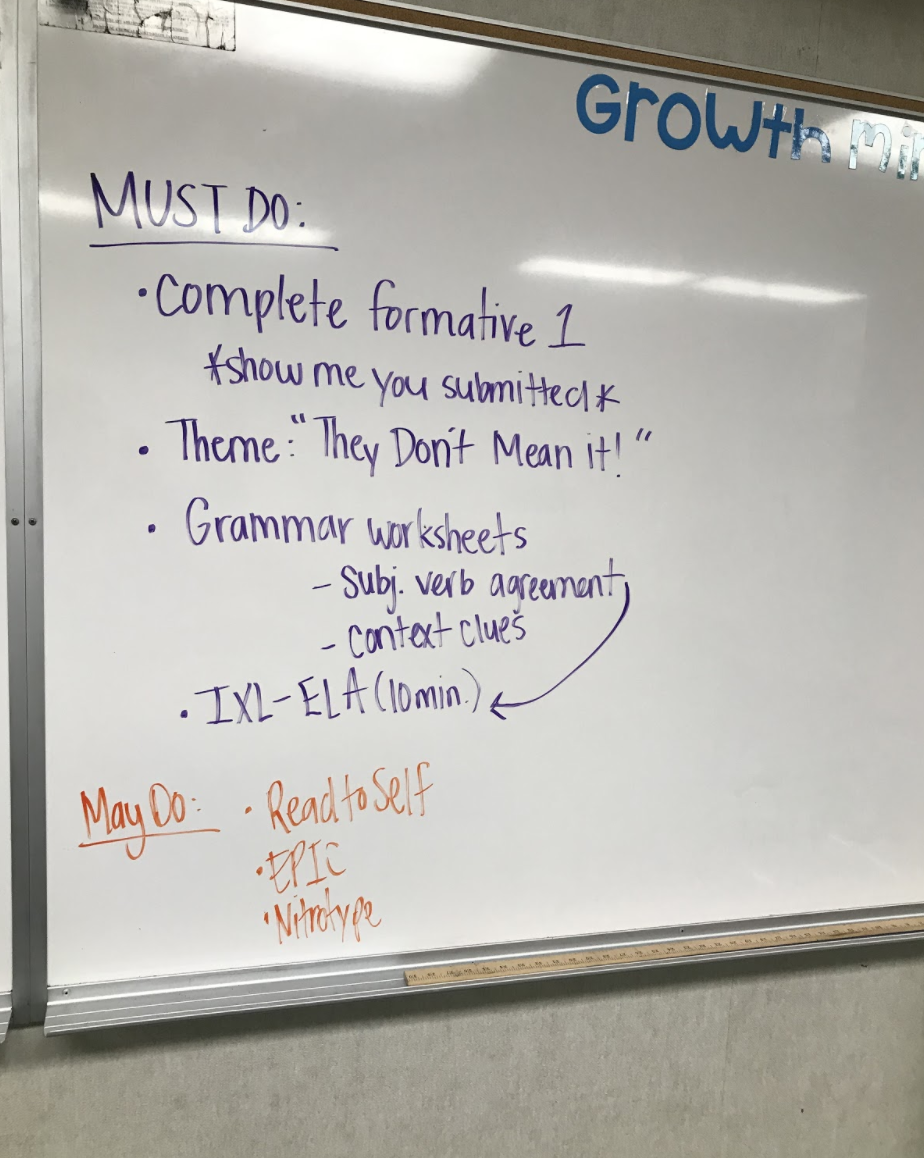 Growth min
MUST DO:
• Complete formative 1
*show me you submitted*
• Theme: "They Don't Mean it!"
• Grammar worksheets
- Subj. verb agreement
- Context clues
• IXL-ELA (10 min.)
May Do: • Read to Self
• EPIC
• Nitrotype